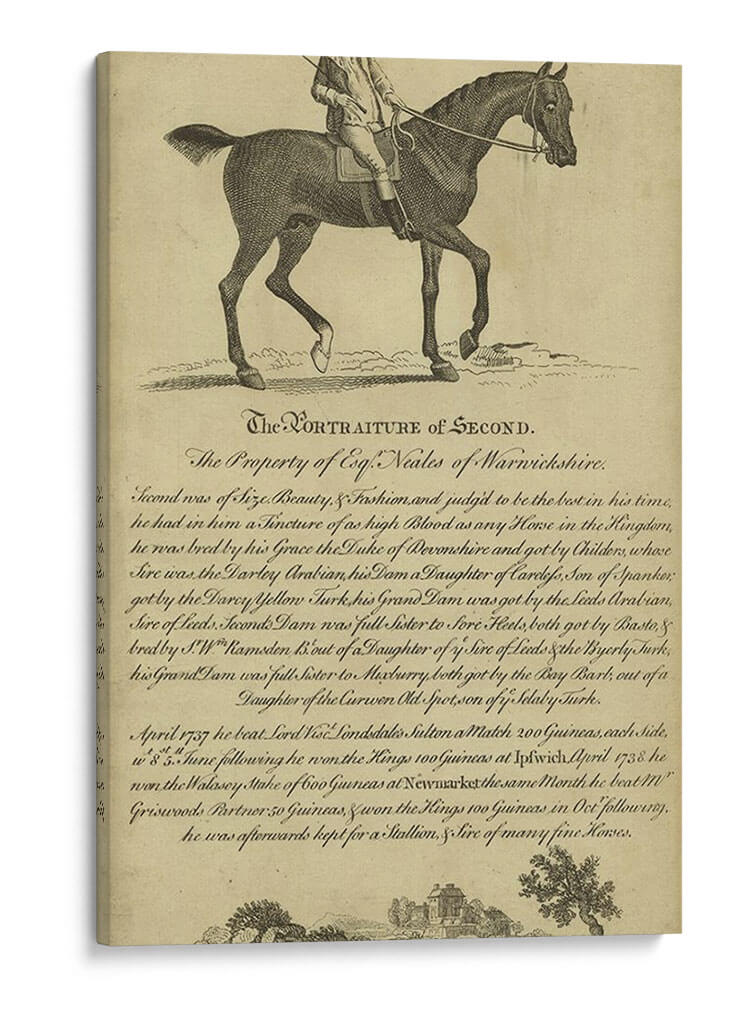 The PORTRAITURE of SECOND.
The Property of Esqr. Neales of Warwickshire.
Second was of Size, Beauty, & Fashion, and judg'd to be the best in his time,
he had in him a Tincture of as high Blood as any Horse in the Kingdom,
he was bred by his Grace the Duke of Devonshire and got by Childers, whose
Sire was the Darley Arabian, his Dam a Daughter of Careless, Son of Spanker,
got by the Darcy Yellow Turk, his Grand Dam was got by the Leeds Arabian,
Sire of Leeds, Second's Dam was full Sister to Sore Heels, both got by Basto, &
bred by Sr. Wm. Ramsden Bt. out of a Daughter of ye Sire of Leeds & the Byerly Turk,
his Grand Dam was full Sister to Mixburry, both got by the Bay Barb; out of a
Daughter of the Curwen Old Spot, son of ye Selaby Turk.
April 1737 he beat Lord Visct. Londsdale's Sulton a Match 200 Guineas, each Side,
wt. 8st. 5ll. June following he won the Kings 100 Guineas at Ipswich, April 1738 he
won the Walasey Stake of 600 Guineas at Newmarket the same Month he beat Mr
Griswoods Partner 50 Guineas, & won the Kings 100 Guineas, in Octr. following.
he was afterwards kept for a Stallion, & Sire of many fine Horses.